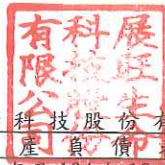 展旺生命
科技股份
有限公司
科技股份有
產負債